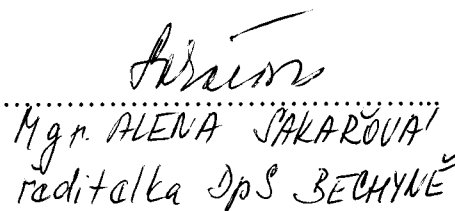 Mgr. ALENA SAKAŘOVÁ
ředitelka DpS BECHYNĚ